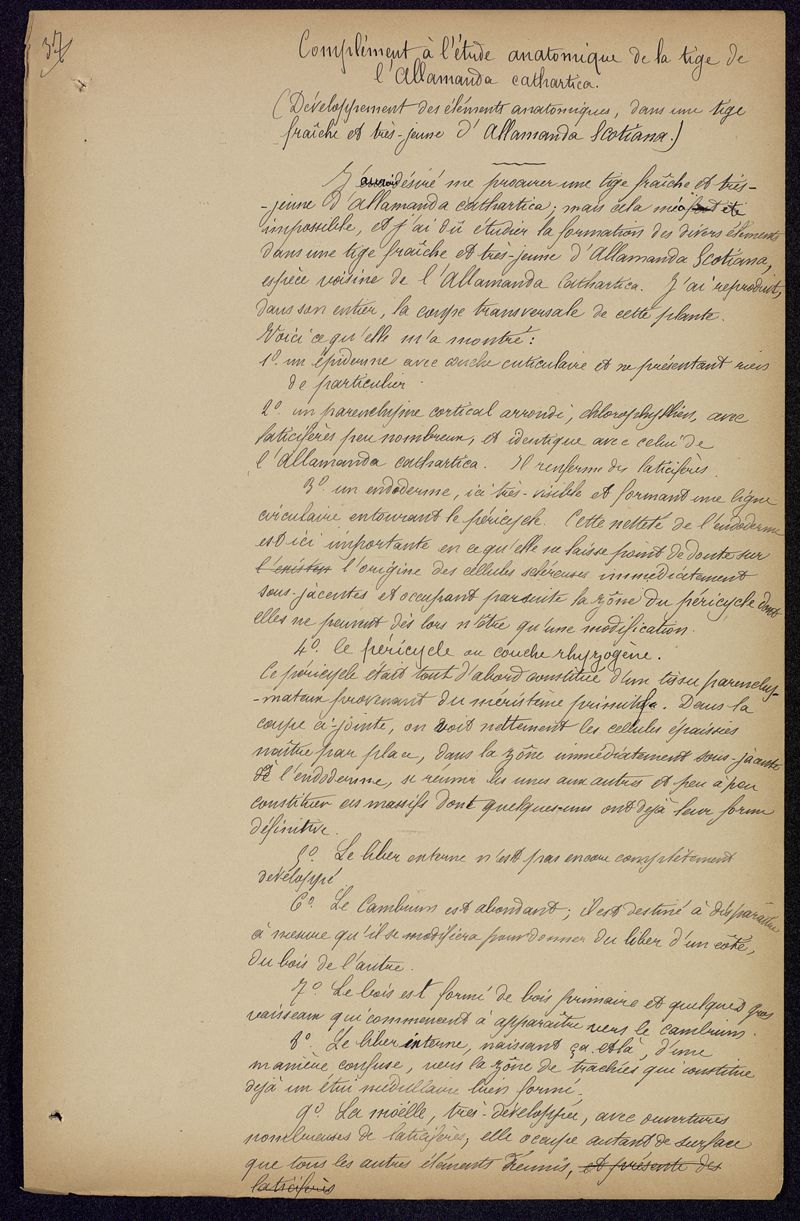 37
Complément à l'étude anatomique de la tige de
l'Allamanda cathartica.
(Développement des éléments anatomiques, dans une tige
fraîche et très-jeune d'Allamanda Scotiana.)
J'aurais désiré me procurer une tige fraîche et très-
-jeune d'Allamanda cathartica; mais cela m'a été
impossible, et j'ai dû étudier la formation des divers éléments
dans une tige fraîche et très-jeune d'Allamanda Scotiana,
espèce voisine de l'Allamanda Cathartica. J'ai reproduit,
dans son entier, la coupe transversale de cette plante.
Voici ce qu'elle m'a montré:
1º. un épiderme avec couche cuticulaire et ne présentant rien
de particulier.
2º un parenchyme cortical arrondi, chlorophyllien, avec
laticifères peu nombreux, et identique avec celui de
l'Allamanda cathartica. Il renferme des laticifères.
3º. un endoderme, ici très-visible et formant une ligne
circulaire entourant le péricycle. Cette netteté de l'endoderme
est ici importante en ce qu'elle ne laisse point de doute sur
l'existen l'origine des cellules scléreuses immédiatement
sous-jacentes et occupant par suite la zône du péricycle dont
elles ne peuvent dès lors n'être qu'une modification.
4º. le péricycle ou couche rhyzogène.
Ce péricycle était tout d'abord constitué d'un tissu parenchy-
-mateux provenant du méristème primitif. Dans la
coupe ci-jointe, on voit nettement les cellules épaissies
naître par place, dans la zône immédiatement sous-jacente
à l'endoderme, se réunir les unes aux autres et peu à peu
constituer ces massifs dont quelques-uns ont déjà leur forme
définitive.
5º. Le liber externe n'est pas encore complètement
développé
6º. Le Cambium est abondant; il est destiné à disparaître
à mesure qu'il se modifiera pour donner du liber d'un côté,
du bois de l'autre.
7º. Le bois est formé de bois primaire et quelques gros
vaisseaux qui commencent à apparaître vers le cambium.
8º. Le liber interne, naissant çà et là, d'une
manière confuse, vers la zône de trachées qui constitue
déjà un étui médullaire bien formé.
9º. La moëlle, très-développée, avec ouvertures
nombreuses de laticifères, elle occupe autant de surface
que tous les autres éléments réunis, et présente des
laticifères